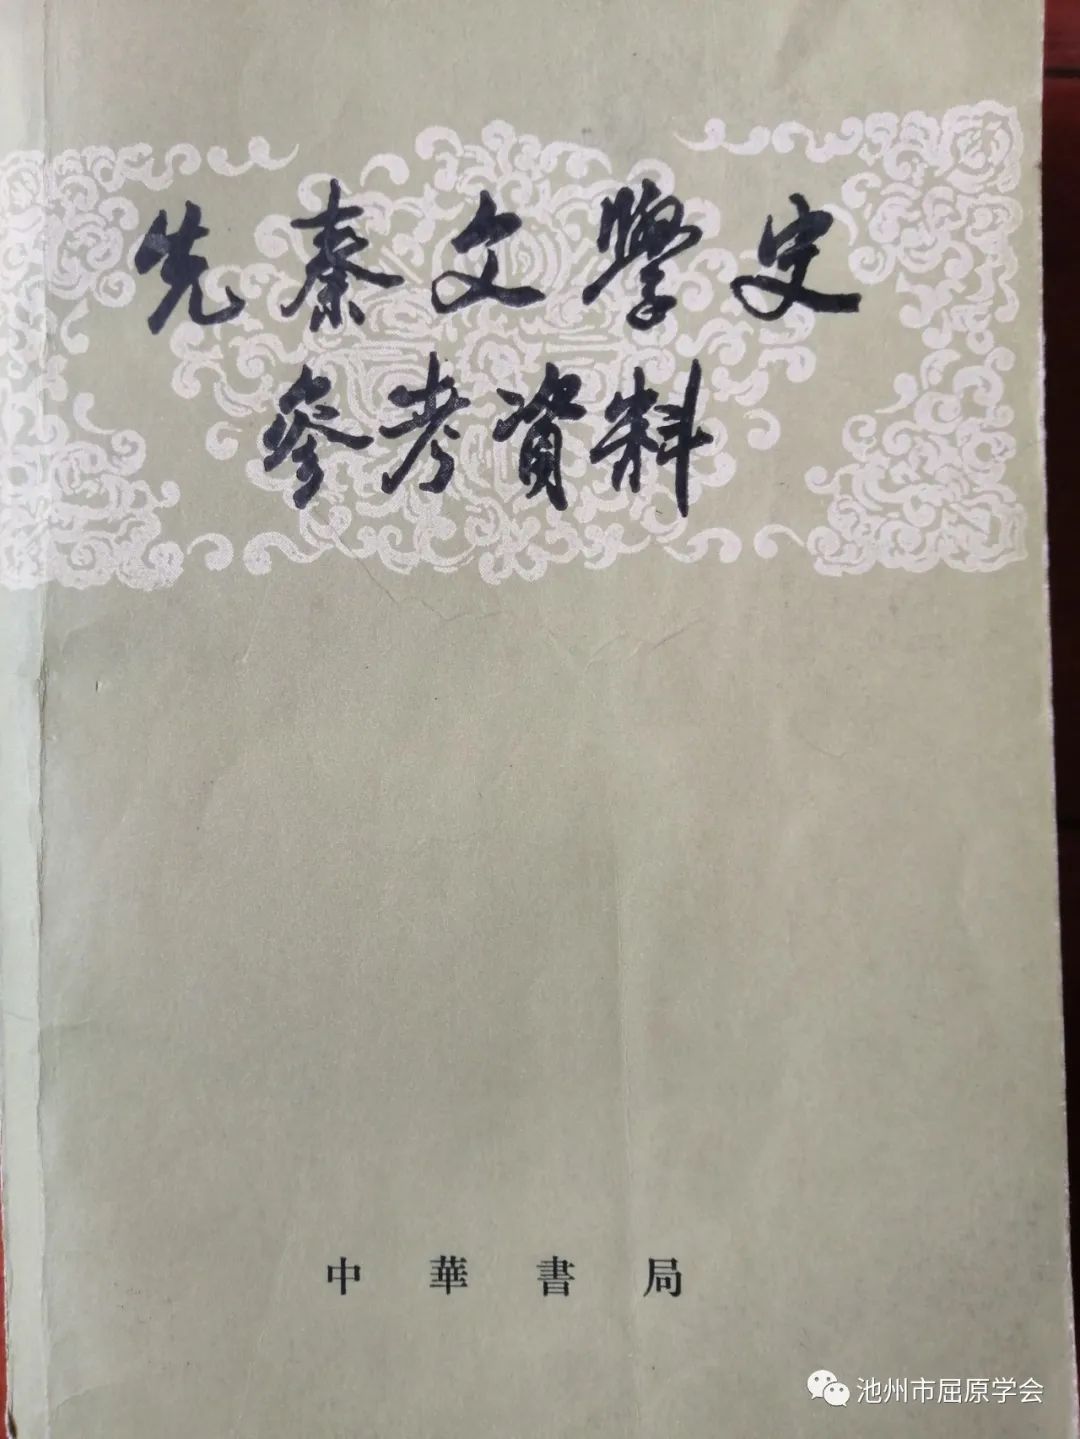 先秦文學史
參考資料
中華書局
池州市屈原学会